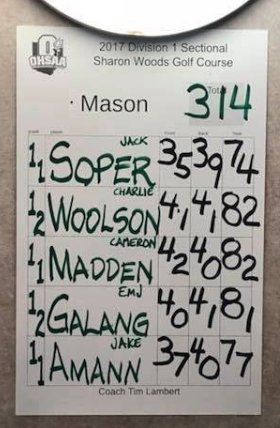 OHSAA
2017 Division 1 Sectional
Sharon Woods Golf Course
Total
· Mason 314
JACK
11 SOPER 35 39 74
CHARLIE
12 WOOLSON 41 41 82
CAMERON
11 MADDEN 42 40 82
EMJ
12 GALANG 40 41 81
JAKE
11 AMANN 37 40 77
Coach Tim Lambert